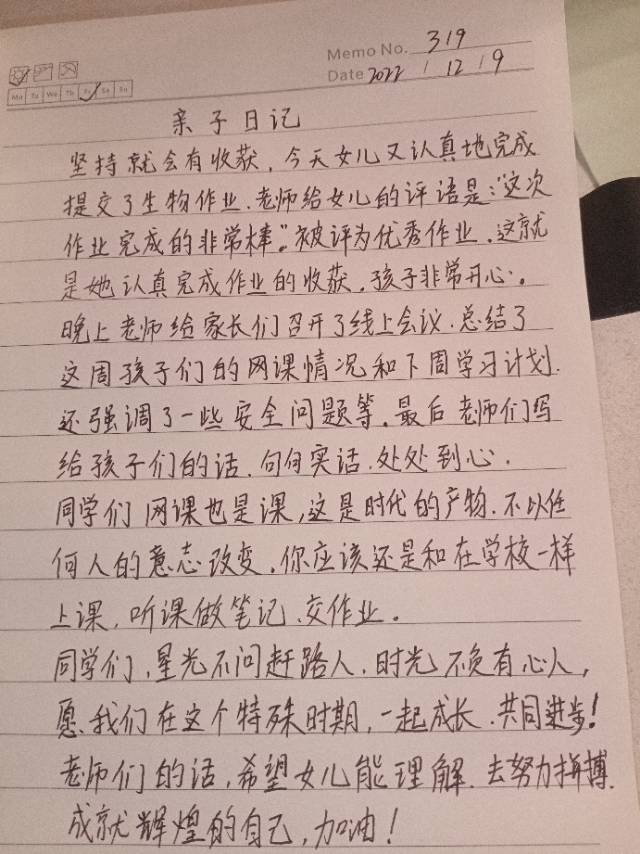 Memo No. 319
Mo Tu We Th Fr Sa Su
Date 2022 / 12 / 9
亲子日记
坚持就会有收获,今天女儿又认真地完成
提交了生物作业.老师给女儿的评语是:“这次
作业完成的非常棒”.被评为优秀作业.这就
是她认真完成作业的收获.孩子非常开心。
晚上老师给家长们召开了线上会议.总结了
这周孩子们的网课情况和下周学习计划.
还强调了一些安全问题等.最后老师们写
给孩子们的话.句句实话.处处到心.
同学们网课也是课,这是时代的产物.不以任
何人的意志改变.你应该还是和在学校一样
上课,听课做笔记、交作业。
同学们,星光不问赶路人.时光不负有心人,
愿我们在这个特殊时期,一起成长.共同进步!
老师们的话,希望女儿能理解.去努力拼搏.
成就辉煌的自己,加油!